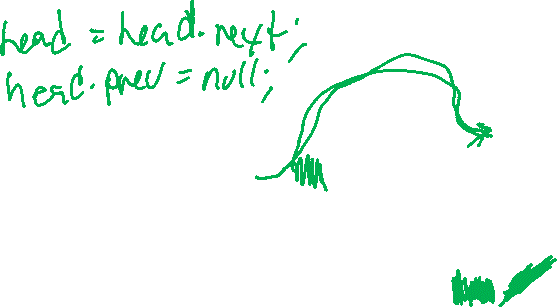 head = head.next;
head.prev = null;